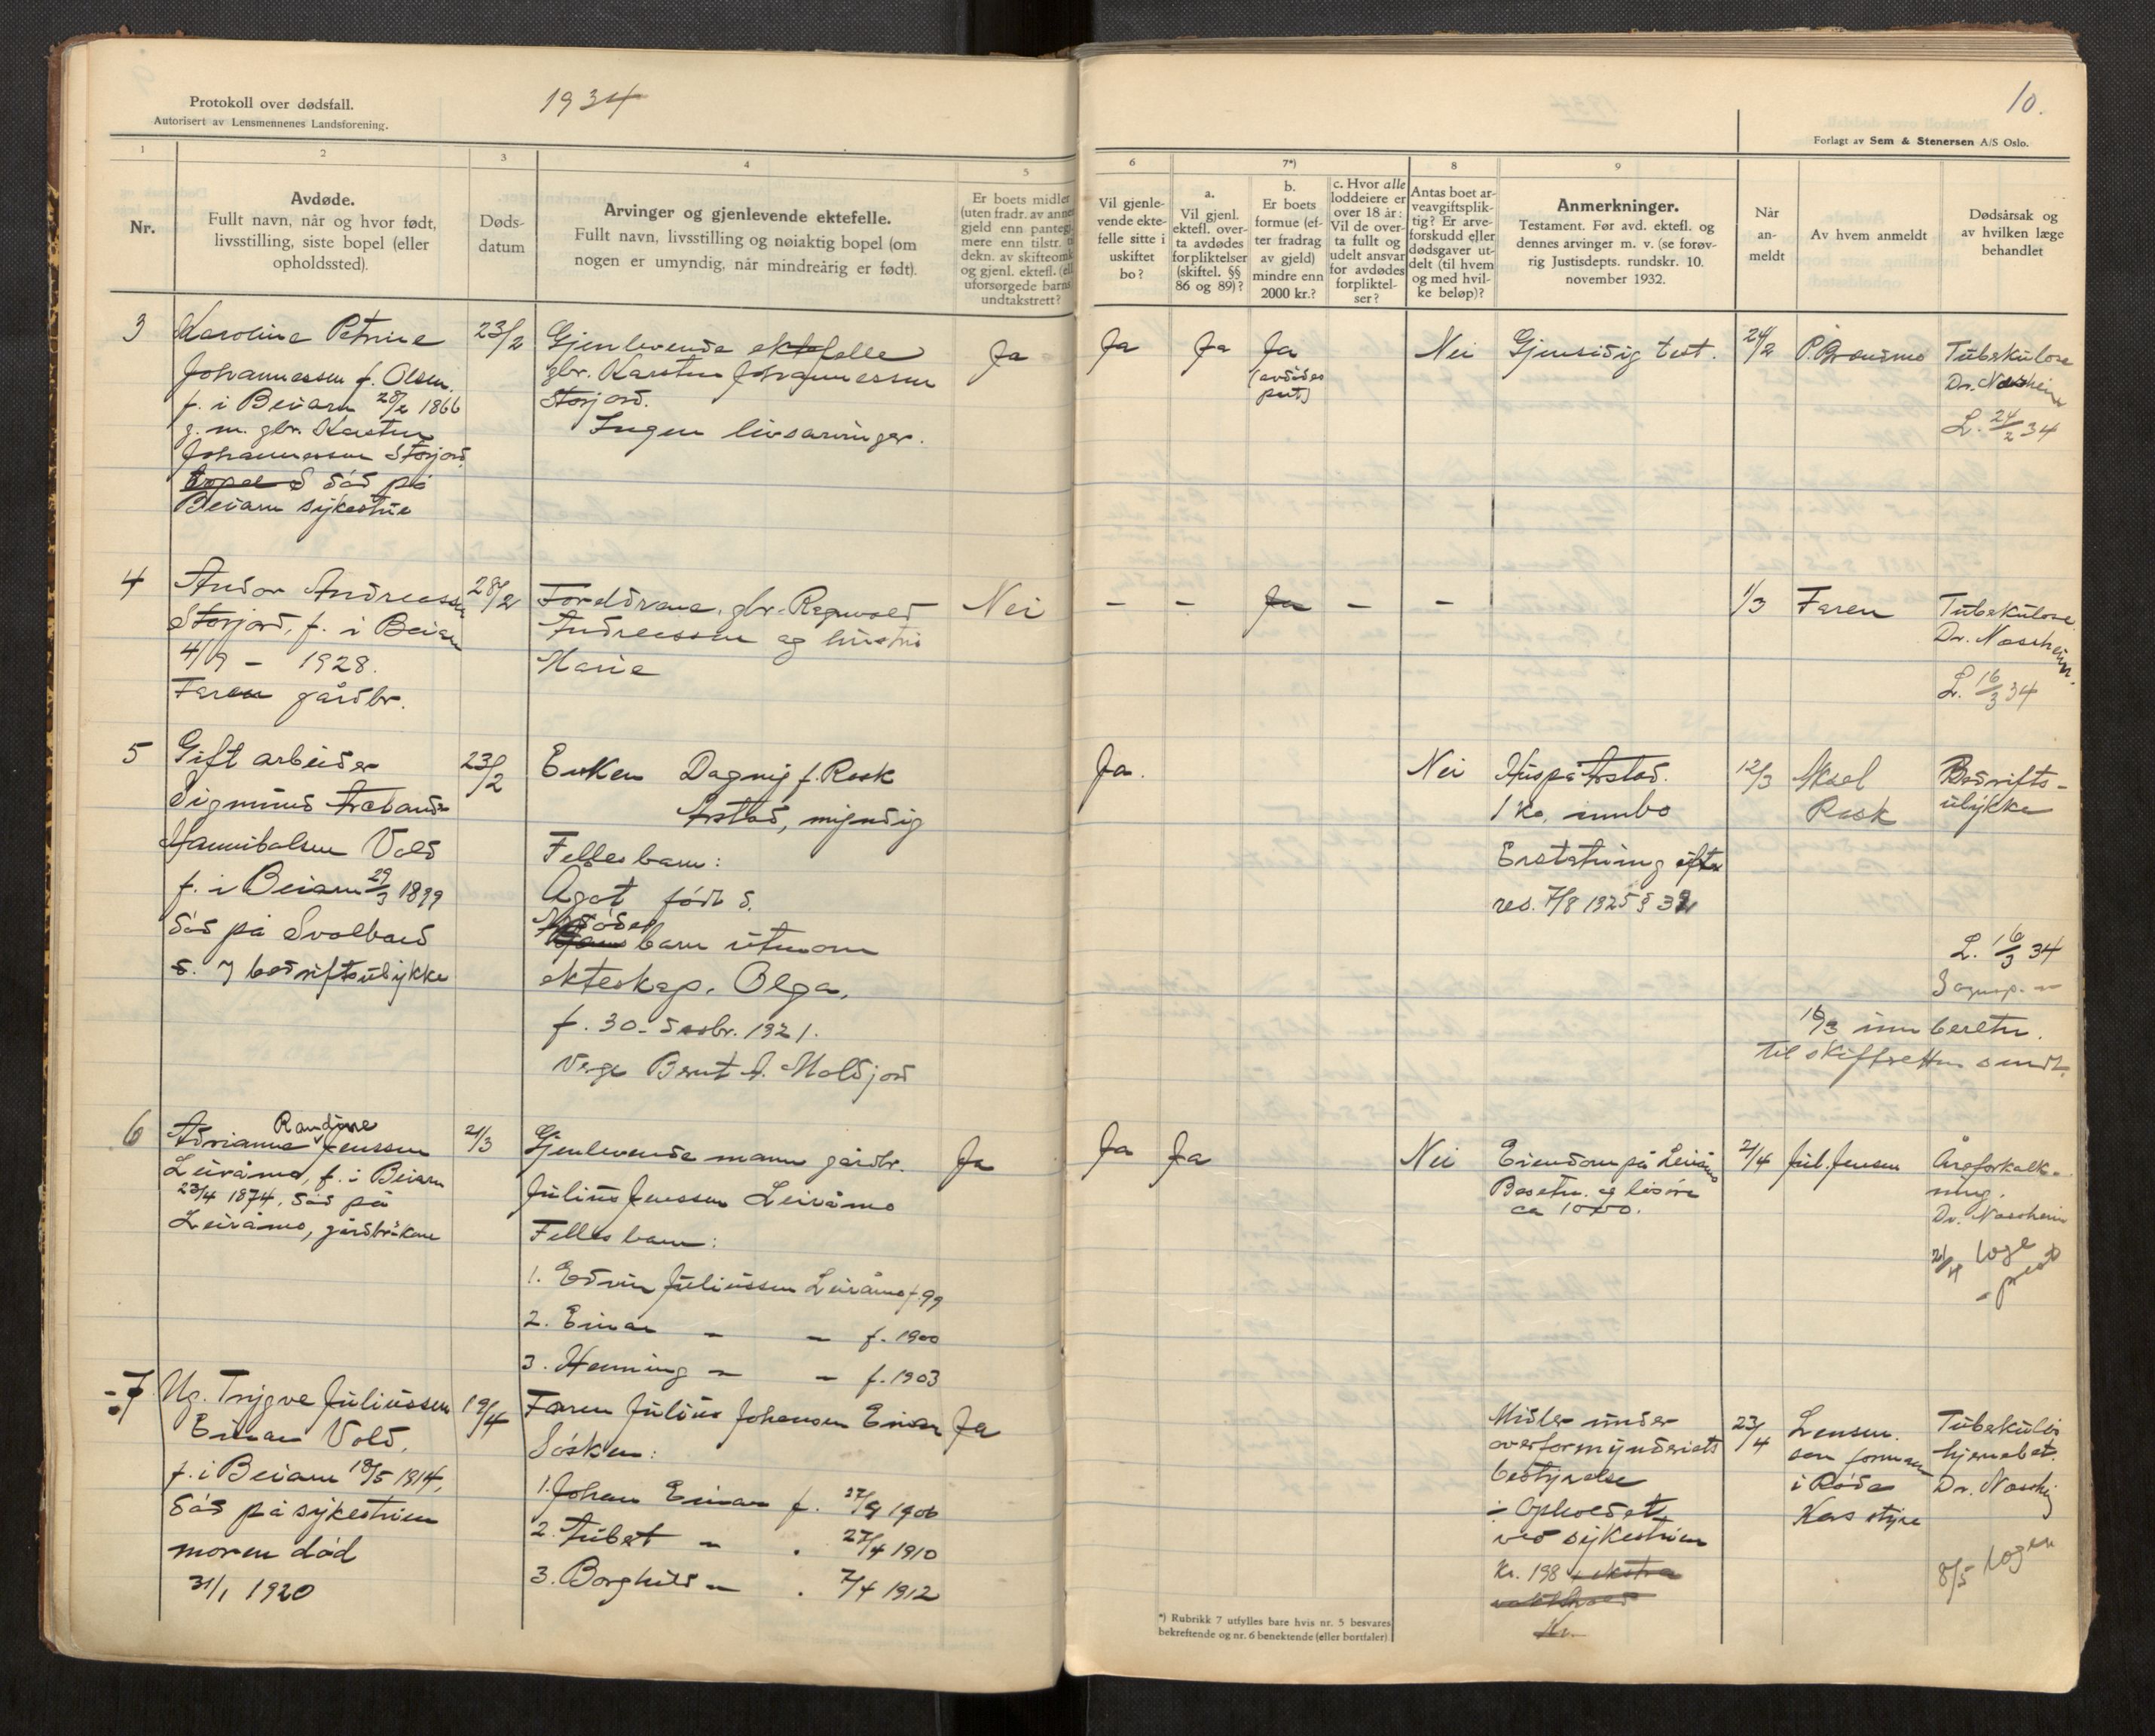 Protokoll over dødsfall.
Autorisert av Lensmennenes Landsforening.
1934
1
2
3
4
5
Nr.
Avdøde.
Fullt navn, når og hvor født,
livsstilling, siste bopel (eller
opholdssted).
Døds-
datum
Arvinger og gjenlevende ektefelle.
Fullt navn, livsstilling og nøiaktig bopel (om
nogen er umyndig, når mindreårig er født).
Er boets midler
(uten fradr. av annen
gjeld enn pantegj
mere enn tilstr. ti
dekn. av skifteomk
og gjenl. ektefl. (ell
uforsørgede barns
undtakstrett?
3
Karoline Petrine
Johannessen f. Olsen.
f. i Beiarn 28/2 1866
g. m. gbr. Karsten
Johannessen Storjord.
død på
Beiarn sykestue
23/2
Gjenlevende ektefelle
gbr. Karsten Johannessen
Storjord.
Ingen livsarvinger.
Ja
4
Andor Andreassen
Storjord, f. i Beiarn
4/9 – 1928.
Faren gårdbr.
28/2
Foreldrene, gbr. Ragnvald
Andreassen og hustru
Marie
Nei
5
Gift arbeider
Sigmund
Hannibalsen Vold
f. i Beiarn 29/3 1899
død på Svalbard
bedriftsulykke
23/2
Enken Dagny f. Rask
Arstad, myndig
Fellesbarn:
Agot født d.
Avdødes
barn utenom
ekteskap. Olga,
f. 30. desbr. 1921.
Verge Bernt A. Moldjord
6
Randine
Adrianna Jenssen
Leiråmo, f. i Beiarn
23/4 1874, død på
Leiråmo, gårdbr.kone
21/3
Gjenlevende mann gårdbr.
Julius Jenssen Leiråmo
Fellesbarn:
1. Edvin Juliussen Leiråmo f. 99
2. Einar – – f. 1900
3. Henning – – f. 1903
Ja
7
Ug. Trygve Juliussen
Einar Vold,
f. i Beiarn 18/5 1914,
død på sykestuen
moren død
31/1 1920
19/4
Faren Julius Johansen Einar
Søsken:
1. Johan Einar f. 27/9 1906
2. – . 27/4 1910
3. Borghild – . 7/4 1912
Ja
10.
Forlagt av Sem & Stenersen A/S Oslo.
6
7*)
8
9
Vil gjenle-
vende ekte-
felle sitte i
uskiftet
bo?
a.
Vil gjenl.
ektefl. over-
ta avdødes
forpliktelser
(skiftel. §§
86 og 89)?
b.
Er boets
formue (ef-
ter fradrag
av gjeld)
mindre enn
2000 kr.?
c. Hvor alle
loddeiere er
over 18 år:
Vil de over-
ta fullt og
udelt ansvar
for avdødes
forpliktel-
ser?
Antas boet ar-
veavgiftsplik-
tig? Er arve-
forskudd eller
dødsgaver ut-
delt (til hvem
og med hvil-
ke beløp)?
Anmerkninger.
Testament. Før avd. ektefl. og
dennes arvinger m. v. (se forøv-
rig Justisdepts. rundskr. 10.
november 1932.
Når
an-
meldt
Av hvem anmeldt
Dødsårsak og
av hvilken læge
behandlet
Ja
Ja
Ja
(avdødes
part)
Nei
Gjensidig test.
24/2
Tuberkulose
Dr. Noscheim
L. 24/2 34
– – Ja – –
1/3
Faren
Tuberkulose
Dr. Noscheim.
L. 16/3 34
Ja.
Nei
Hus på Arstad.
1 ko, innbo
Erstatning efter
res. 7/8 1925 § 32
12/3
Aksel
Rask
Bedrifts-
ulykke
L. 16/3 34
Sognep. –
16/3 innberetn.
til skifteretten sendt.
Ja
Ja
Nei
Eiendom på Leiråmo
Besetn. og løsøre
ca 1000.
2/4
Jul. Jensen
Åreforkalk-
ning.
Dr. Noscheim
21/4 læge
– prest
Midler under
overformynderiets
bestyrelse
Opholdet
ved sykestuen
Kr. 198 + ekstra
Kr.
23/4
Lensm.
som formann
i Røde
Kors styre
Tuberkuløs
hjernebet.
Dr. Noscheim
8/5 lægen
*) Rubrikk 7 utfylles bare hvis nr. 5 besvares
bekreftende og nr. 6 benektende (eller bortfaler)